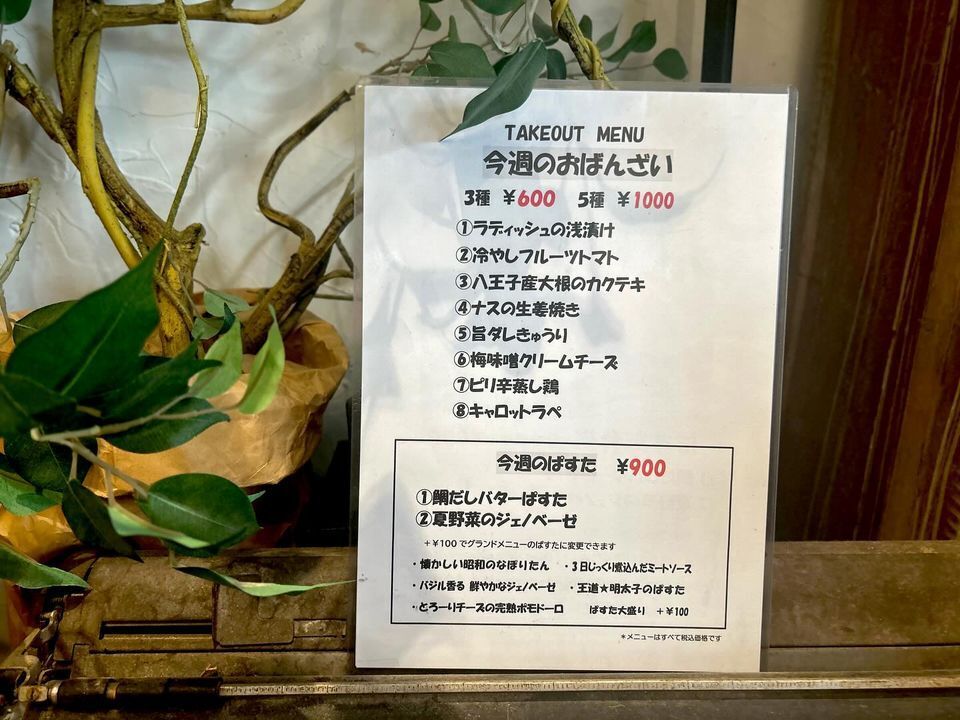 TAKEOUT MENU
今週のおばんざい
3種 ¥600 5種 ¥1000
①ラディッシュの浅漬け
②冷やしフルーツトマト
③八王子産大根のカクテキ
④ナスの生姜焼き
⑤旨ダレきゅうり
⑥梅味噌クリームチーズ
⑦ピリ辛蒸し鶏
⑧キャロットラペ
今週のぱすた ¥900
①鯛だしバターぱすた
②夏野菜のジェノベーゼ
+¥100でグランドメニューのぱすたに変更できます
・懐かしい昭和のなぽりたん ・3日じっくり煮込んだミートソース
・バジル香る 鮮やかなジェノベーゼ ・王道★明太子のぱすた
・とろーりチーズの完熟ポモドーロ ぱすた大盛り +¥100
*メニューはすべて税込価格です